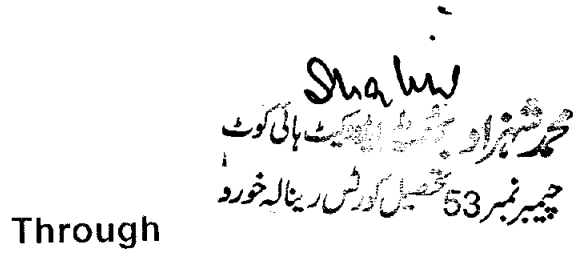 محمد شہزاد ایڈووکیٹ ہائی کورٹ
چیمبر نمبر 53 تحصیل کورٹس رینالہ خورد
Through